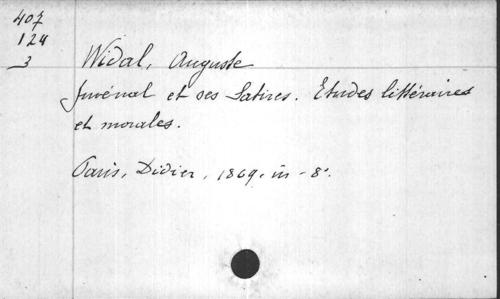 407
124
3
Widal, Auguste
Juvénal et ses Satires. Etudes littéraires
et morales.
Paris, Didier, 1869. in-8°.